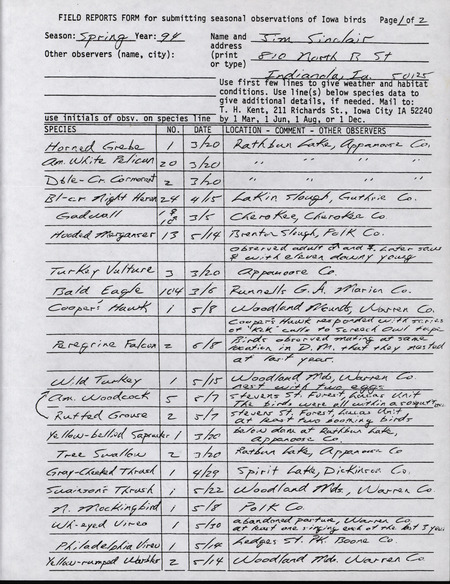 FIELD REPORTS FORM for submitting seasonal observations of Iowa birds Page 1 of 2
Season: Spring Year: 94 Name and Jim Sinclair
address
Other observers (name, city): (print 810 North B St
or type)
Indianola, Ia. 50125
Use first few lines to give weather and habitat
conditions. Use line(s) below species data to
give additional details, if needed. Mail to:
T. H. Kent, 211 Richards St., Iowa City IA 52240
use initials of obsv. on species line by 1 Mar, 1 Jun, 1 Aug, or 1 Dec.
SPECIES NO. DATE LOCATION - COMMENT - OTHER OBSERVERS
Horned Grebe 1 3/20 Rathbun Lake, Appanoose Co.
Am. White Pelican 20 3/20 " " " "
Dble-Cr Cormorant 2 3/20 " " " "
Bl-cr Night Heron 24 4/15 Lakin Slough, Guthrie Co.
Gadwall 1♀ 1♂ 3/5 Cherokee, Cherokee Co
Hooded Merganser 13 5/14 Brenton Slough, Polk Co.
observed adult ♂ and ♀. Later saw
♀ with eleven downy young
Turkey Vulture 3 3/20 Appanoose Co.
Bald Eagle 104 3/5 Runnells G.A. Marion Co.
Cooper's Hawk 1 5/8 Woodland Mounds, Warren Co.
Cooper's Hawk responded with series
of "Kek" calls to Screech Owl tape
Peregrine Falcon 2 5/8 Birds observed mating at same
location in D.M. that they nested
at last year.
Wild Turkey 1 5/15 Woodland Mds, Warren Co.
nest with two eggs
Am. Woodcock 5 5/7 Stevens St. Forest, Lucas Unit
The birds were all within a
Ruffed Grouse 2 5/7 Stevens St. Forest, Lucas Unit
at least two booming birds
Yellow-bellied Sapsucker 1 3/20 below dam at Rathbun Lake,
Appanoose Co.
Tree Swallow 2 3/20 Rathbun Lake, Appanoose Co
Gray-Cheeked Thrush 1 4/29 Spirit Lake, Dickinson Co.
Swainson's Thrush 1 5/22 Woodland Mds, Warren Co.
N. Mockingbird 1 5/8 Polk Co.
Wh-eyed Vireo 1 5/30 abandoned pasture, Warren Co.
at least one singing each of the last 3 years
Philadelphia Vireo 1 5/14 Ledges St. Pk. Boone Co.
Yellow-rumped Warbler 2 5/14 Woodland Mds. Warren Co.